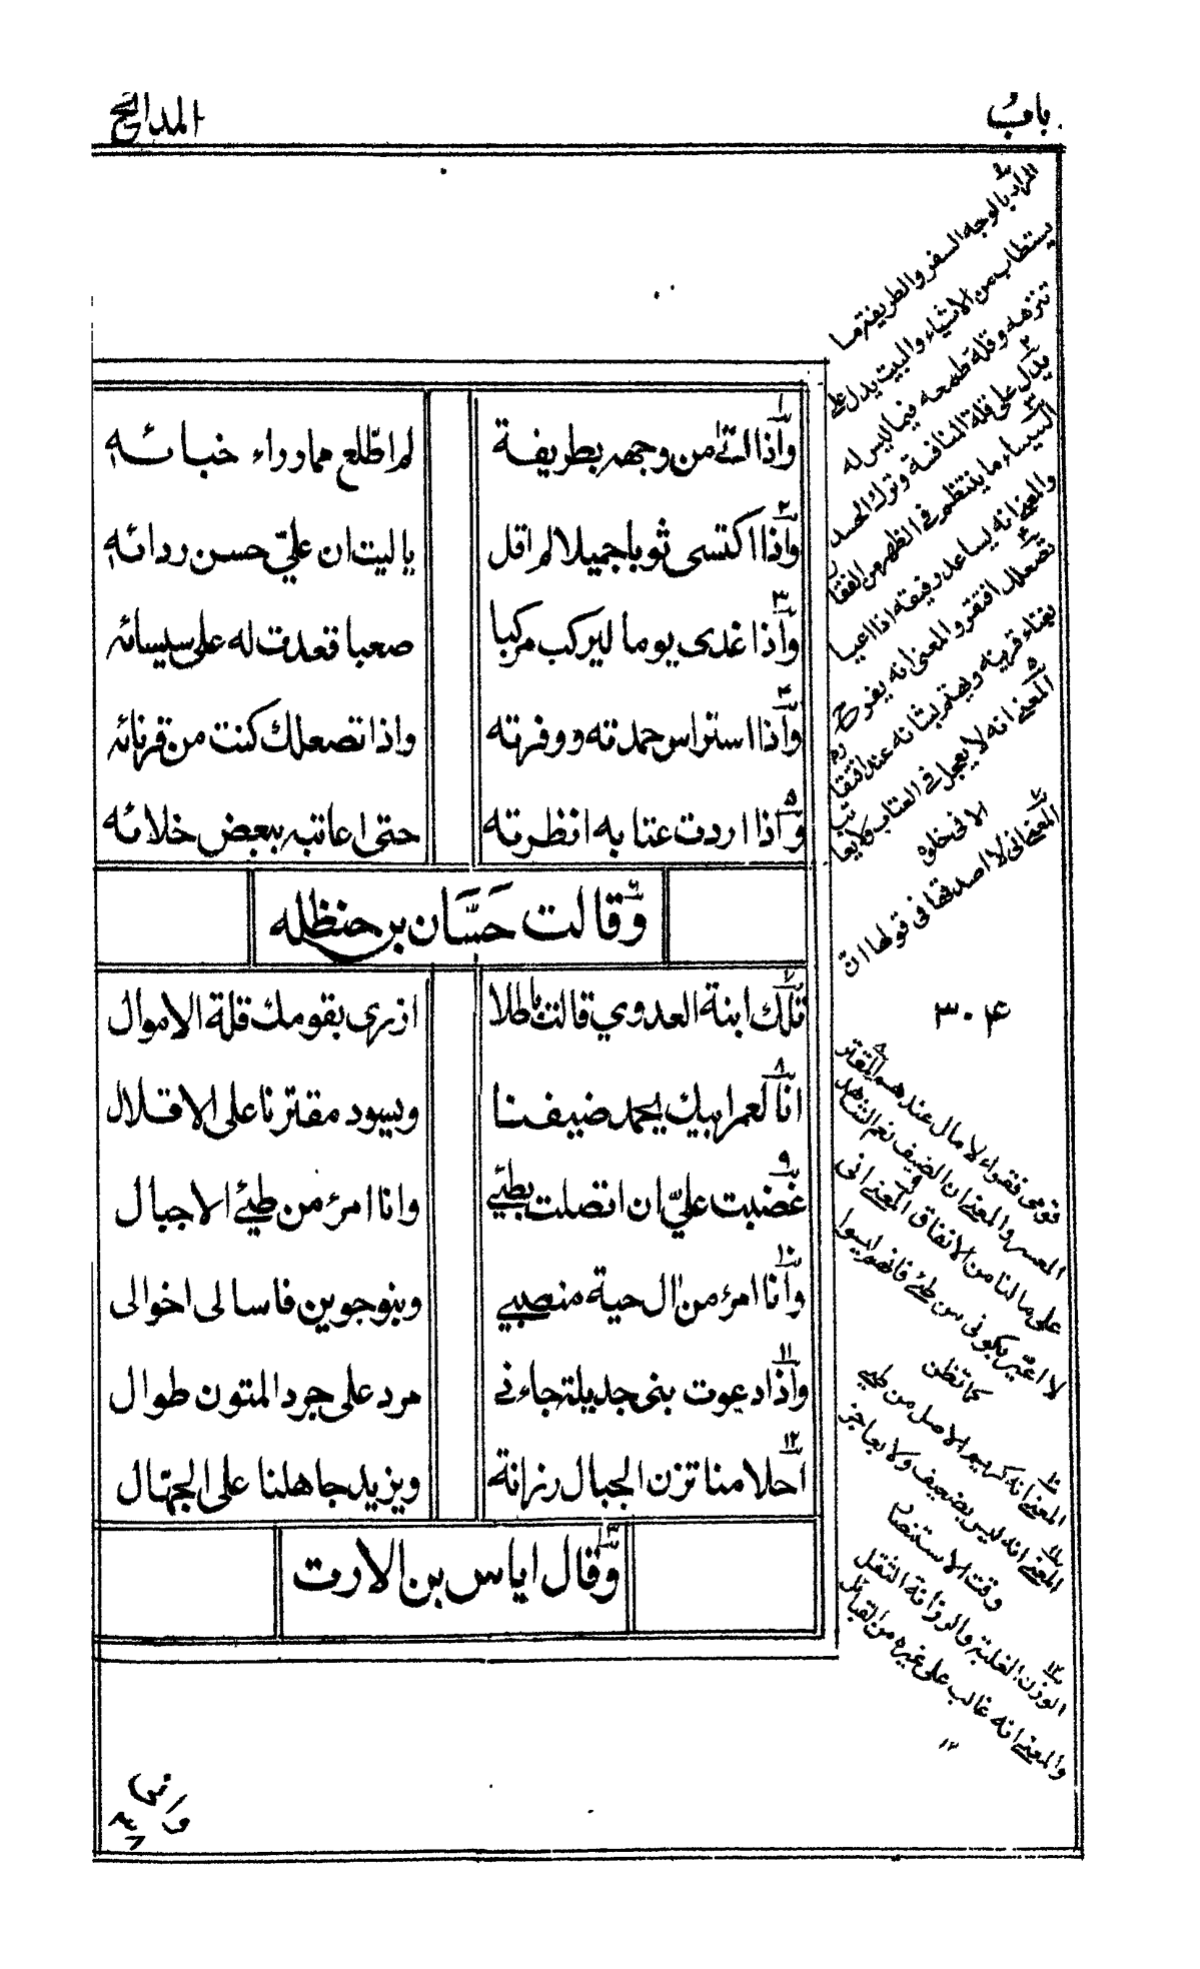 باب المدائح
واذا اتى من وجهه بطريفة لم اطّلع مما وراء خبائه
واذا اكتسى ثوبا جميلا لم اقل يا ليت ان عليّ حسن ردائه
واذا غدى يوما ليركب مركبا صعبا قعدت له على سيسائه
واذا استراس حمدته ووفرته واذا تصعلك كنت من قرنائه
واذا اردت عتابه انظرته حتى اعاتبه ببعض خلائه
وقالت حَسَّان بن حنظله
تلك ابنة العدوي قالت باطلا ازرى بقومك قلة الاموال
انا لعمر ابيك يحمد ضيفنا ويسود مقترنا على الاقلال
غضبت عليّ ان اتصلت بطيئ وانا امرؤ من طيئ الاجبال
وانا امرؤ من ال حية منصبي وبنو جوين فاسالى اخوالى
واذا دعوت بنى جديلة جاءنى مرد على جرد المتون طوال
احلامنا تزن الجبال رزانة ويزيد جاهلنا على الجهّال
وقال اياس بن الارت
المراد بالوجه السفر والطريفة ما
يستطاب من الاشياء والبيت يدل على
تنزهه وقلة طمعه فيما ليس له
يدل على قلة المنافسة وترك الحسد
السيساء ما ينتظم فى الظهر من الفقار
والمعنى انه يساعد رفيقه اذا اعيا
تصعلك افتقر والمعنى انه يفرح
بغناء قرينه ويهتم بشانه عند افتقاره
المعنى انه لا يعجل فى العتاب ولا يعاتب
الا فى خلوة
المعنى انى لا اصدقها فى قولها ان
٣٠٤
قومى فقراء لا مال عندهم المقتر
المعسر والمعنى ان الضيف نعم الشاهد
على ما لنا من الانفاق المعنى انى
لا اعيّر بكونى من طئ فانهم ليسوا
كما تظن
المعنى انه كريم الاصل من طيئ
المعنى انه ليس بضعيف ولا بعاجز
وقت الاستنصار
الوزن الغلبة والرزانة الثقل
والمعنى انه غالب على غيره من القبائل
١٢
وانى
٣٨